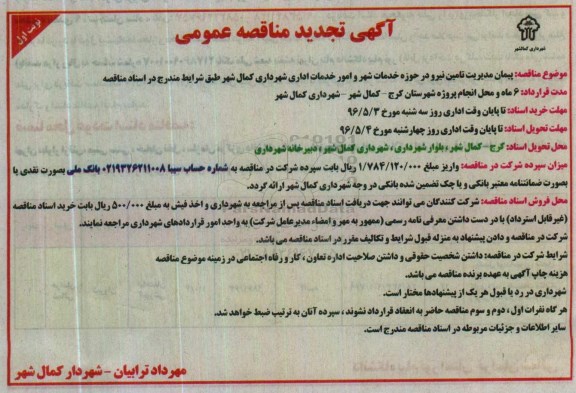 نوبت اول
شهرداری کمالشهر
آگهی تجدید مناقصه عمومی
موضوع مناقصه: پیمان مدیریت تامین نیرو در حوزه خدمات شهر و امور خدمات اداری شهرداری کمال شهر طبق شرایط مندرج در اسناد مناقصه
مدت قرارداد: ۶ ماه و محل انجام پروژه شهرستان کرج - کمال شهر - شهرداری کمال شهر
مهلت خرید اسناد: تا پایان وقت اداری روز سه شنبه مورخ ۹۶/۵/۳
مهلت تحویل اسناد: تا پایان وقت اداری روز چهارشنبه مورخ ۹۶/۵/۴
محل تحویل اسناد: کرج - کمال شهر، بلوار شهرداری، شهرداری کمال شهر، دبیرخانه شهرداری
میزان سپرده شرکت در مناقصه: واریز مبلغ ۱/۷۸۴/۱۲۰/۰۰۰ ریال بابت سپرده شرکت در مناقصه به شماره حساب سیبا ۰۲۱۹۳۲۶۲۱۱۰۰۸ بانک ملی بصورت نقدی یا
بصورت ضمانتنامه معتبر بانکی و یا چک تضمین شده بانکی در وجه شهرداری کمال شهر ارائه گردد.
محل فروش اسناد مناقصه: شرکت کنندگان می توانند جهت دریافت اسناد مناقصه پس از مراجعه به شهرداری و اخذ فیش به مبلغ ۵۰۰/۰۰۰ ریال بابت خرید اسناد مناقصه
(غیرقابل استرداد) با در دست داشتن معرفی نامه رسمی (ممهور به مهر و امضاء مدیرعامل شرکت) به واحد امور قراردادهای شهرداری مراجعه نمایند.
شرکت در مناقصه و دادن پیشنهاد به منزله قبول شرایط و تکالیف مقرر در اسناد مناقصه می باشد.
شرایط شرکت در مناقصه: داشتن شخصیت حقوقی و داشتن صلاحیت اداره تعاون، کار و رفاه اجتماعی در زمینه موضوع مناقصه
هزینه چاپ آگهی به عهده برنده مناقصه می باشد.
شهرداری در رد یا قبول هر یک از پیشنهادها مختار است.
هر گاه نفرات اول، دوم و سوم مناقصه حاضر به انعقاد قرارداد نشوند، سپرده آنان به ترتیب ضبط خواهد شد.
سایر اطلاعات و جزئیات مربوطه در اسناد مناقصه مندرج است.
مهرداد ترابیان - شهردار کمال شهر